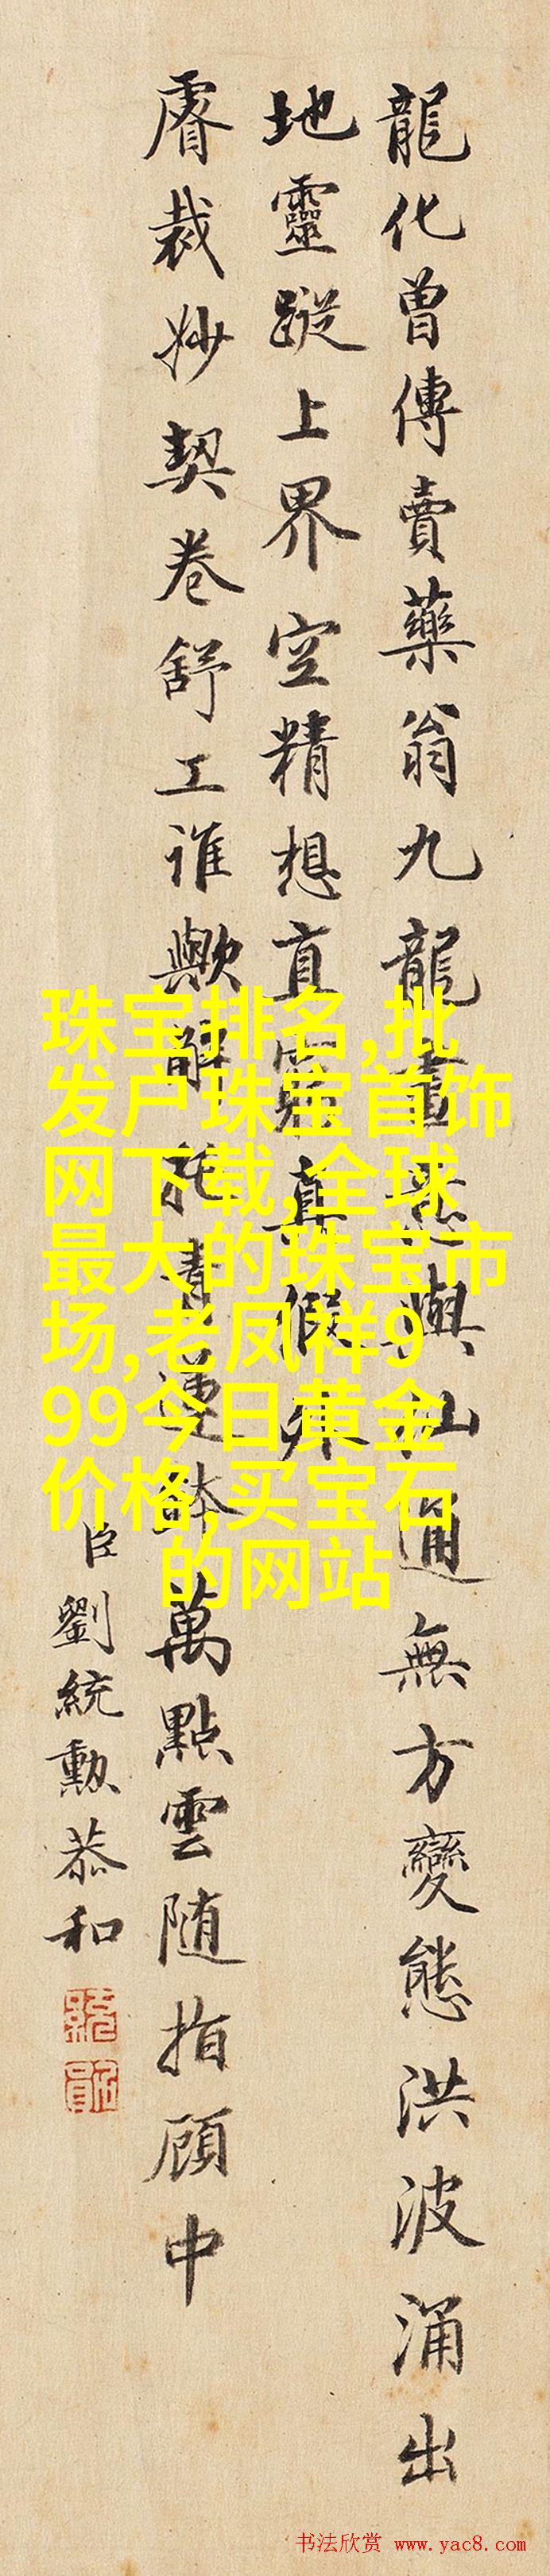 龍化曾傳賣藥翁九龍畫悉與仙通無方變態洪波涌出
地靈蹤上界空精想直窮真假外
睿裁妙契卷舒工誰歟解
萬點雲隨指顧中
臣劉統勳恭和
珠宝排名,批
发户珠宝首饰
网下载,全球
最大的珠宝市
场,老凤祥9
99今日黄金
价格,买宝石
的网站
书法欣赏 www.yac8.com